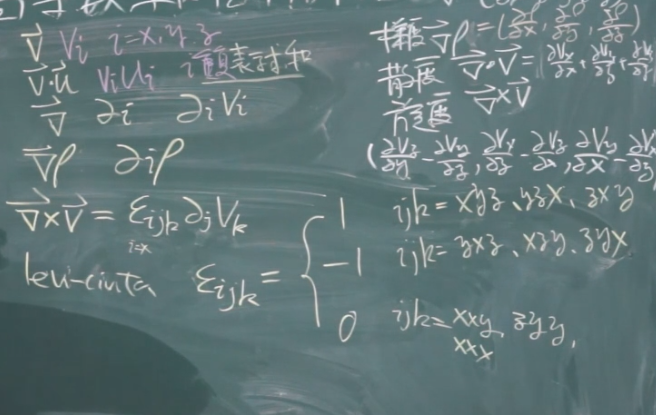 V⃗ Vᵢ i=x,y,z
V⃗·u⃗ VᵢUᵢ i重复表示求和
∇⃗ ∂ᵢ ∂ᵢVᵢ
∇⃗ρ ∂ᵢρ
∇⃗×V⃗ = εᵢⱼₖ ∂ⱼVₖ
i=x
levi-civita εᵢⱼₖ = {
1 ijk=xyz、yzx、zxy
-1 ijk=yxz、xzy、zyx
0 ijk=xxy, zyy,
xxx
梯度 ∇⃗ρ=(∂ρ/∂x, ∂ρ/∂y, ∂ρ/∂z)
散度 ∇⃗·V⃗=(∂Vx/∂x+∂Vy/∂y+∂Vz/∂z
旋度 ∇⃗×V⃗
(∂Vz/∂y-∂Vy/∂z, ∂Vx/∂z-∂Vz/∂x, ∂Vy/∂x-∂Vx/∂y